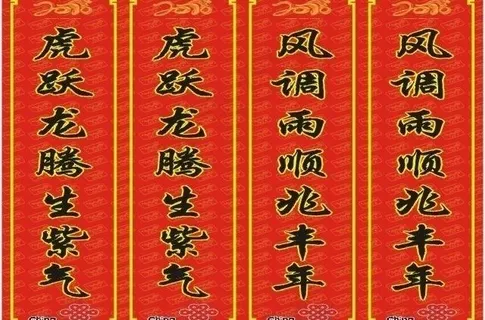 虎跃龙腾生紫气
虎跃龙腾生紫气
风调雨顺兆丰年
风调雨顺兆丰年
China
China
China
China